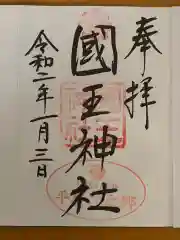 奉拝
國王神社
令和二年一月三日